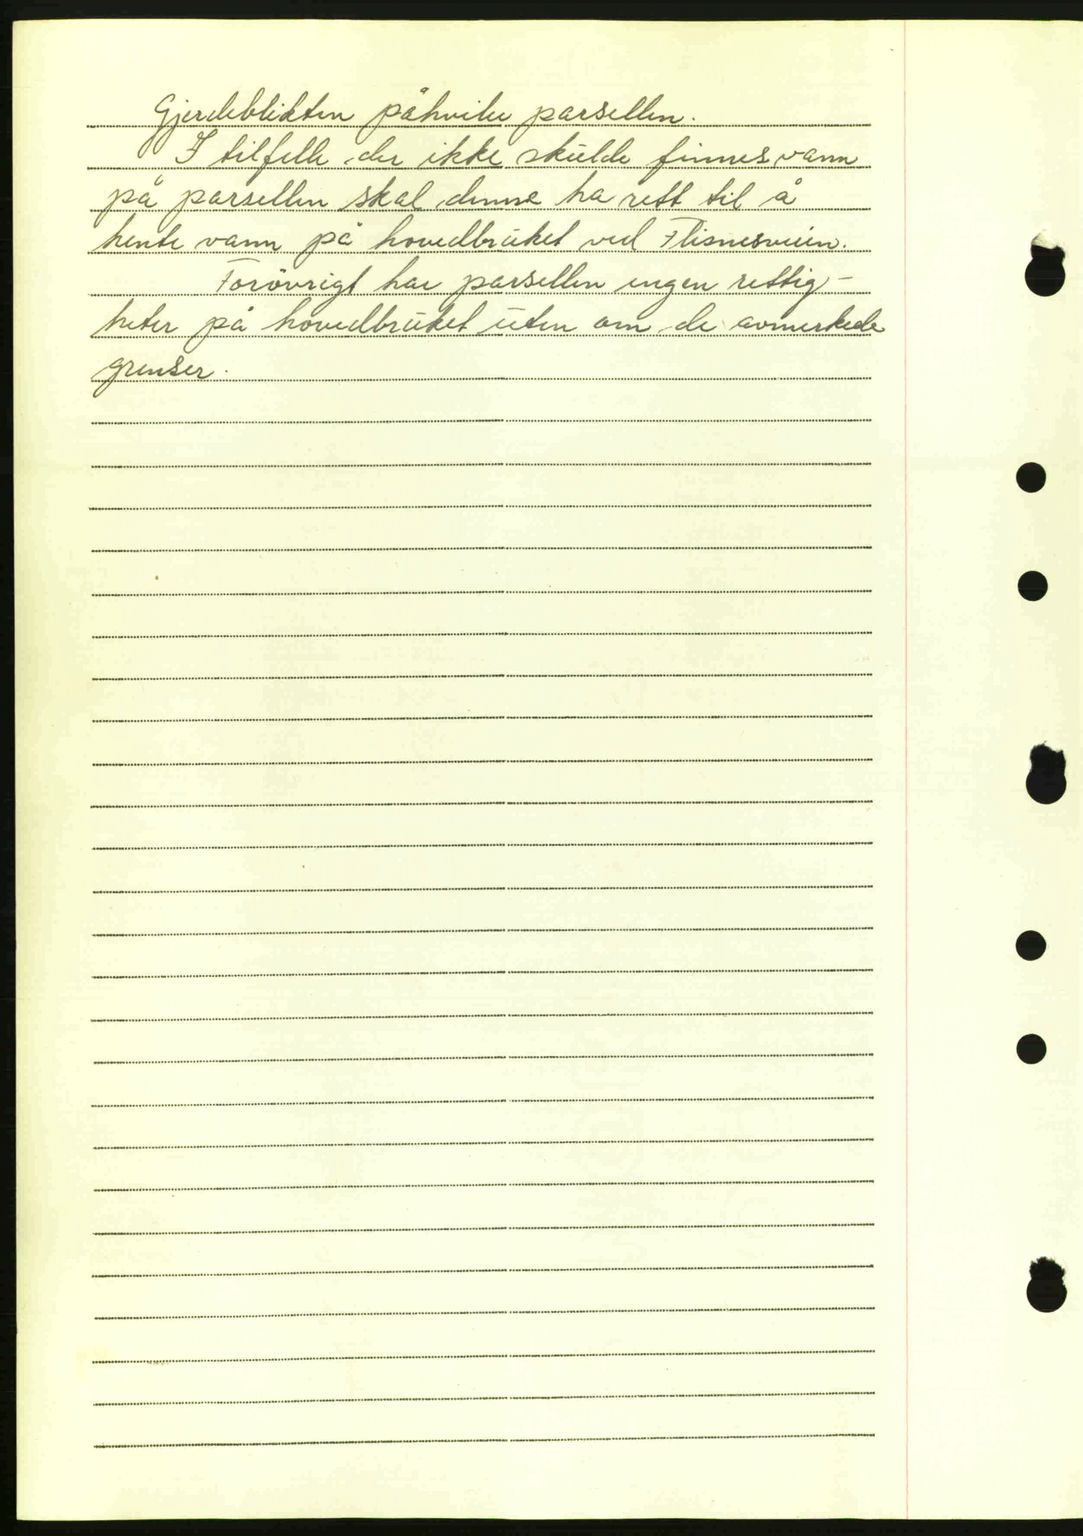 Gjerdeblikten påhviler parsellen.
I tilfelle der ikke skulde finnes vann
på parsellen skal denne ha rett til å
hente vann på hovedbruket ved Flisnesveien.
Forövrigt har parsellen ingen rettig-
heter på hovedbruket uten om de avmerkede
grenser.